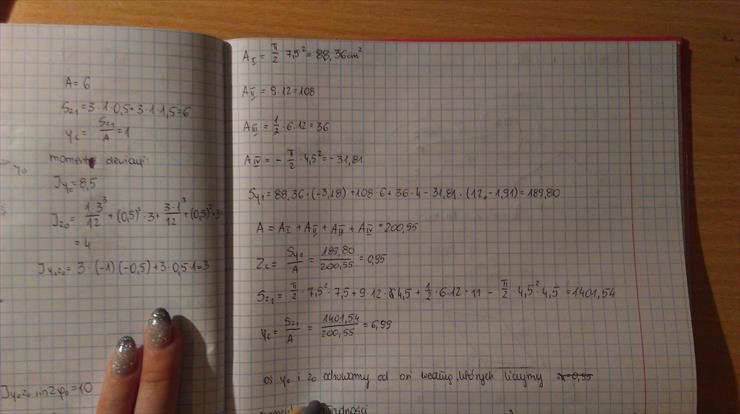 A = 6
S_z1 = 3·1·0,5 + 3·1·1,5 = 6
y_c = S_z1/A = 1
momenty dewiacji
J_y0 = 8,5
J_z0 = 1·3³/12 + (0,5)²·3 + 3·1³/12 + (0,5)²·3 =
= 4
J_y0z0 = 3·(-1)(-0,5) + 3·0,5·1 = 3
J_y0z0 sin2φ0 = 10
A_I = π/2 · 7,5² = 88,36 cm²
A_II = 9·12 = 108
A_III = 1/2 · 6·12 = 36
A_IV = - π/2 · 4,5² = -31,81
S_y1 = 88,36·(-3,18) + 108·6 + 36·4 - 31,81·(12 - 1,91) = 189,80
A = A_I + A_II + A_III + A_IV = 200,55
Z_c = S_y1/A = 189,80/200,55 = 0,95
S_z1 = π/2 · 7,5² · 7,5 + 9·12·4,5 + 1/2 · 6·12·11 - π/2 · 4,5² 4,5 = 1401,54
y_c = S_z1/A = 1401,54/200,55 = 6,99
oś y0 i z0 od osi według których liczymy